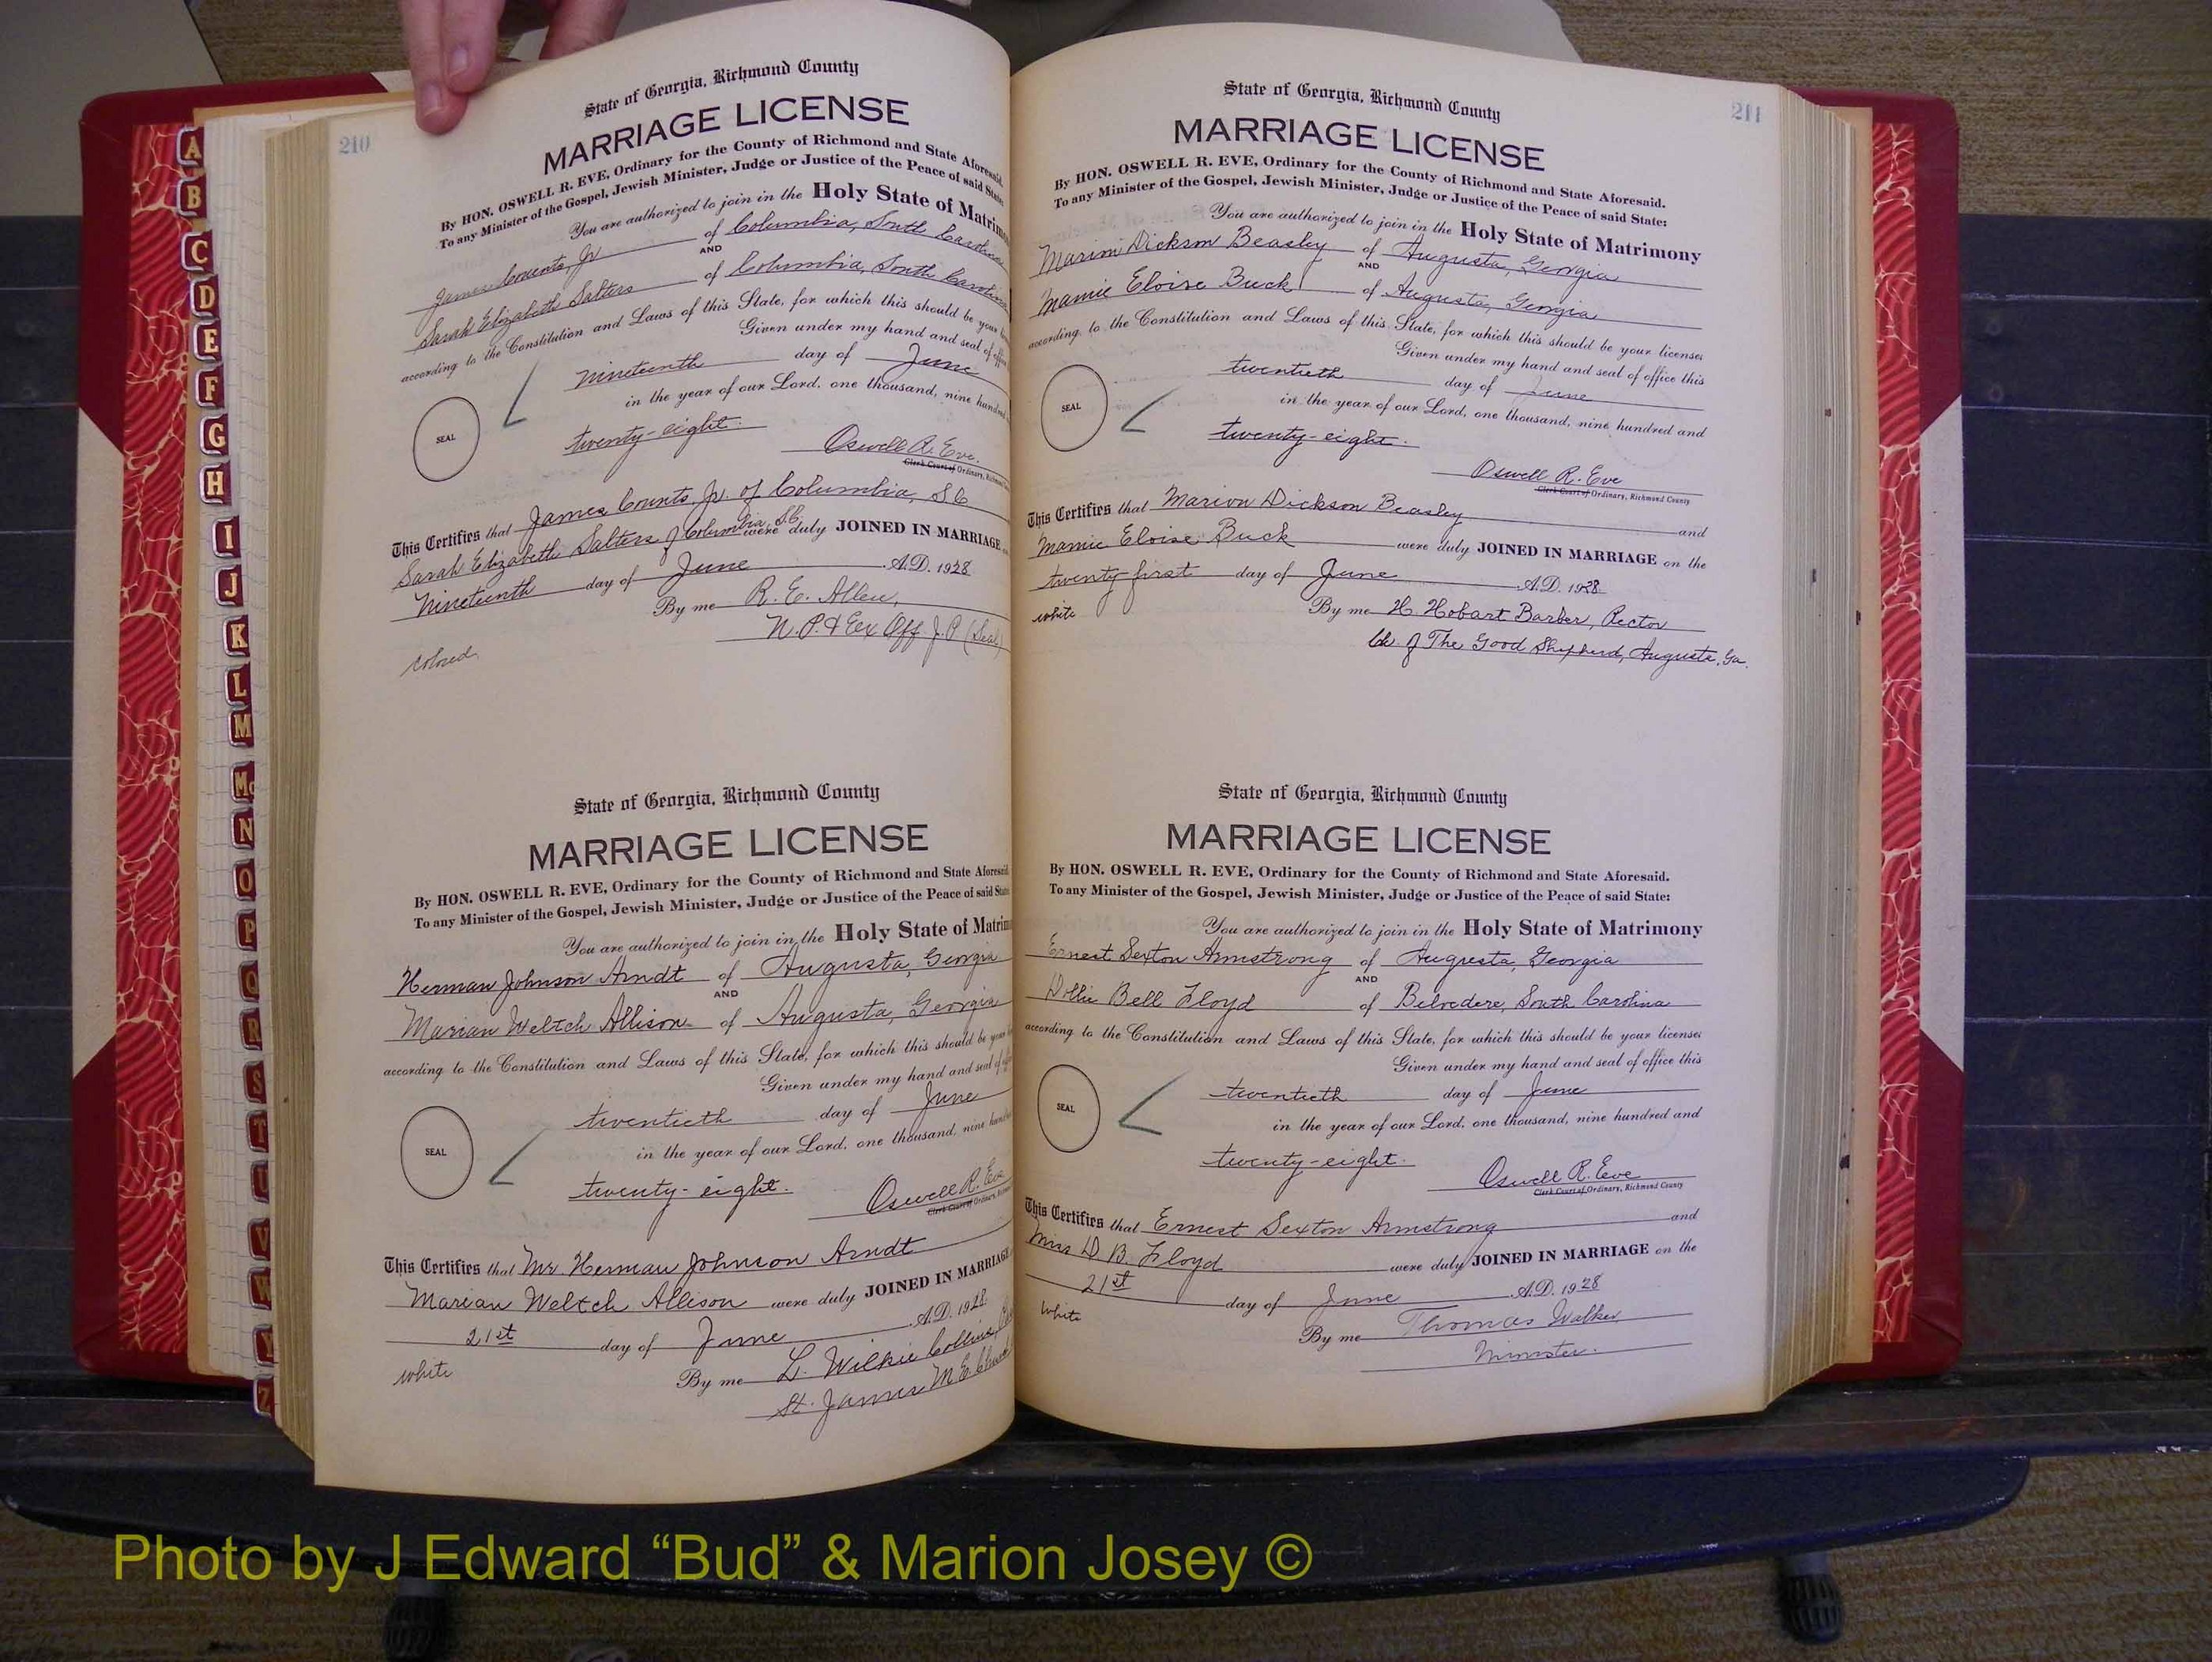 210
State of Georgia, Richmond County
MARRIAGE LICENSE
By HON. OSWELL R. EVE, Ordinary for the County of Richmond and State Aforesaid.
To any Minister of the Gospel, Jewish Minister, Judge or Justice of the Peace of said State
You are authorized to join in the Holy State of Matrimo
James Counts, Jr. of Columbia, South Carolina
AND
Sarah Elizabeth Salters of Columbia, South Carolina
according to the Constitution and Laws of this State, for which this should be your
Given under my hand and seal of office
nineteenth day of June
in the year of our Lord, one thousand, nine hundred
SEAL
twenty-eight.
Oswell R. Eve.
Clerk Court of Ordinary, Richmond
This Certifies that James Counts, Jr. of Columbia, S.C.
Sarah Elizabeth Salters of Columbia, S.C. were duly JOINED IN MARRIAGE
Nineteenth day of June A.D. 1928
By me R. E. Allen,
N. P. & Ex Off. J. P. (Seal)
colored
State of Georgia, Richmond County
MARRIAGE LICENSE
By HON. OSWELL R. EVE, Ordinary for the County of Richmond and State Aforesaid
To any Minister of the Gospel, Jewish Minister, Judge or Justice of the Peace of said State
You are authorized to join in the Holy State of Matrim
Herman Johnson Arndt of Augusta, Georgia
AND
Marian Weltch Allison of Augusta, Georgia
according to the Constitution and Laws of this State, for which this should be your
Given under my hand and seal of
twentieth day of June
in the year of our Lord, one thousand, nine hund
SEAL
twenty-eight.
Oswell R. Eve
Clerk Court of Ordinary,
This Certifies that Mr Herman Johnson Arndt
Marian Weltch Allison were duly JOINED IN MARRIAGE
21st day of June A.D. 1928
white
By me L. Wilkie Collins,
St. James M. E. Church
211
State of Georgia, Richmond County
MARRIAGE LICENSE
By HON. OSWELL R. EVE, Ordinary for the County of Richmond and State Aforesaid.
To any Minister of the Gospel, Jewish Minister, Judge or Justice of the Peace of said State:
You are authorized to join in the Holy State of Matrimony
Marion Dickson Beasley of Augusta, Georgia
AND
Mamie Eloise Buck of Augusta, Georgia
according to the Constitution and Laws of this State, for which this should be your license:
Given under my hand and seal of office this
twentieth day of June
in the year of our Lord, one thousand, nine hundred and
SEAL
twenty-eight.
Oswell R. Eve
Clerk Court of Ordinary, Richmond County
This Certifies that Marion Dickson Beasley and
Mamie Eloise Buck were duly JOINED IN MARRIAGE on the
twenty first day of June A.D. 1928
white
By me H. Hobart Barber, Rector
Ch. of The Good Shepherd, Augusta, Ga.
State of Georgia, Richmond County
MARRIAGE LICENSE
By HON. OSWELL R. EVE, Ordinary for the County of Richmond and State Aforesaid.
To any Minister of the Gospel, Jewish Minister, Judge or Justice of the Peace of said State:
You are authorized to join in the Holy State of Matrimony
Ernest Sexton Armstrong of Augusta, Georgia
AND
Dollie Bell Floyd of Belvedere, South Carolina
according to the Constitution and Laws of this State, for which this should be your license:
Given under my hand and seal of office this
twentieth day of June
in the year of our Lord, one thousand, nine hundred and
SEAL
twenty-eight.
Oswell R. Eve
Clerk Court of Ordinary, Richmond County
This Certifies that Ernest Sexton Armstrong and
Miss D. B. Floyd were duly JOINED IN MARRIAGE on the
21st day of June A.D. 1928
white
By me Thomas Walker
Minister.
A
B
C
D
E
F
G
H
I
J
K
L
M
Mc
N
O
P
Q
R
S
T
U
V
W
Y
Z
Photo by J Edward “Bud” & Marion Josey ©